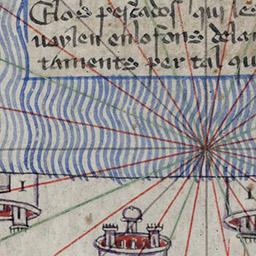 Elos pescados qui
uaylen enlo fons dela
taments per tal qu